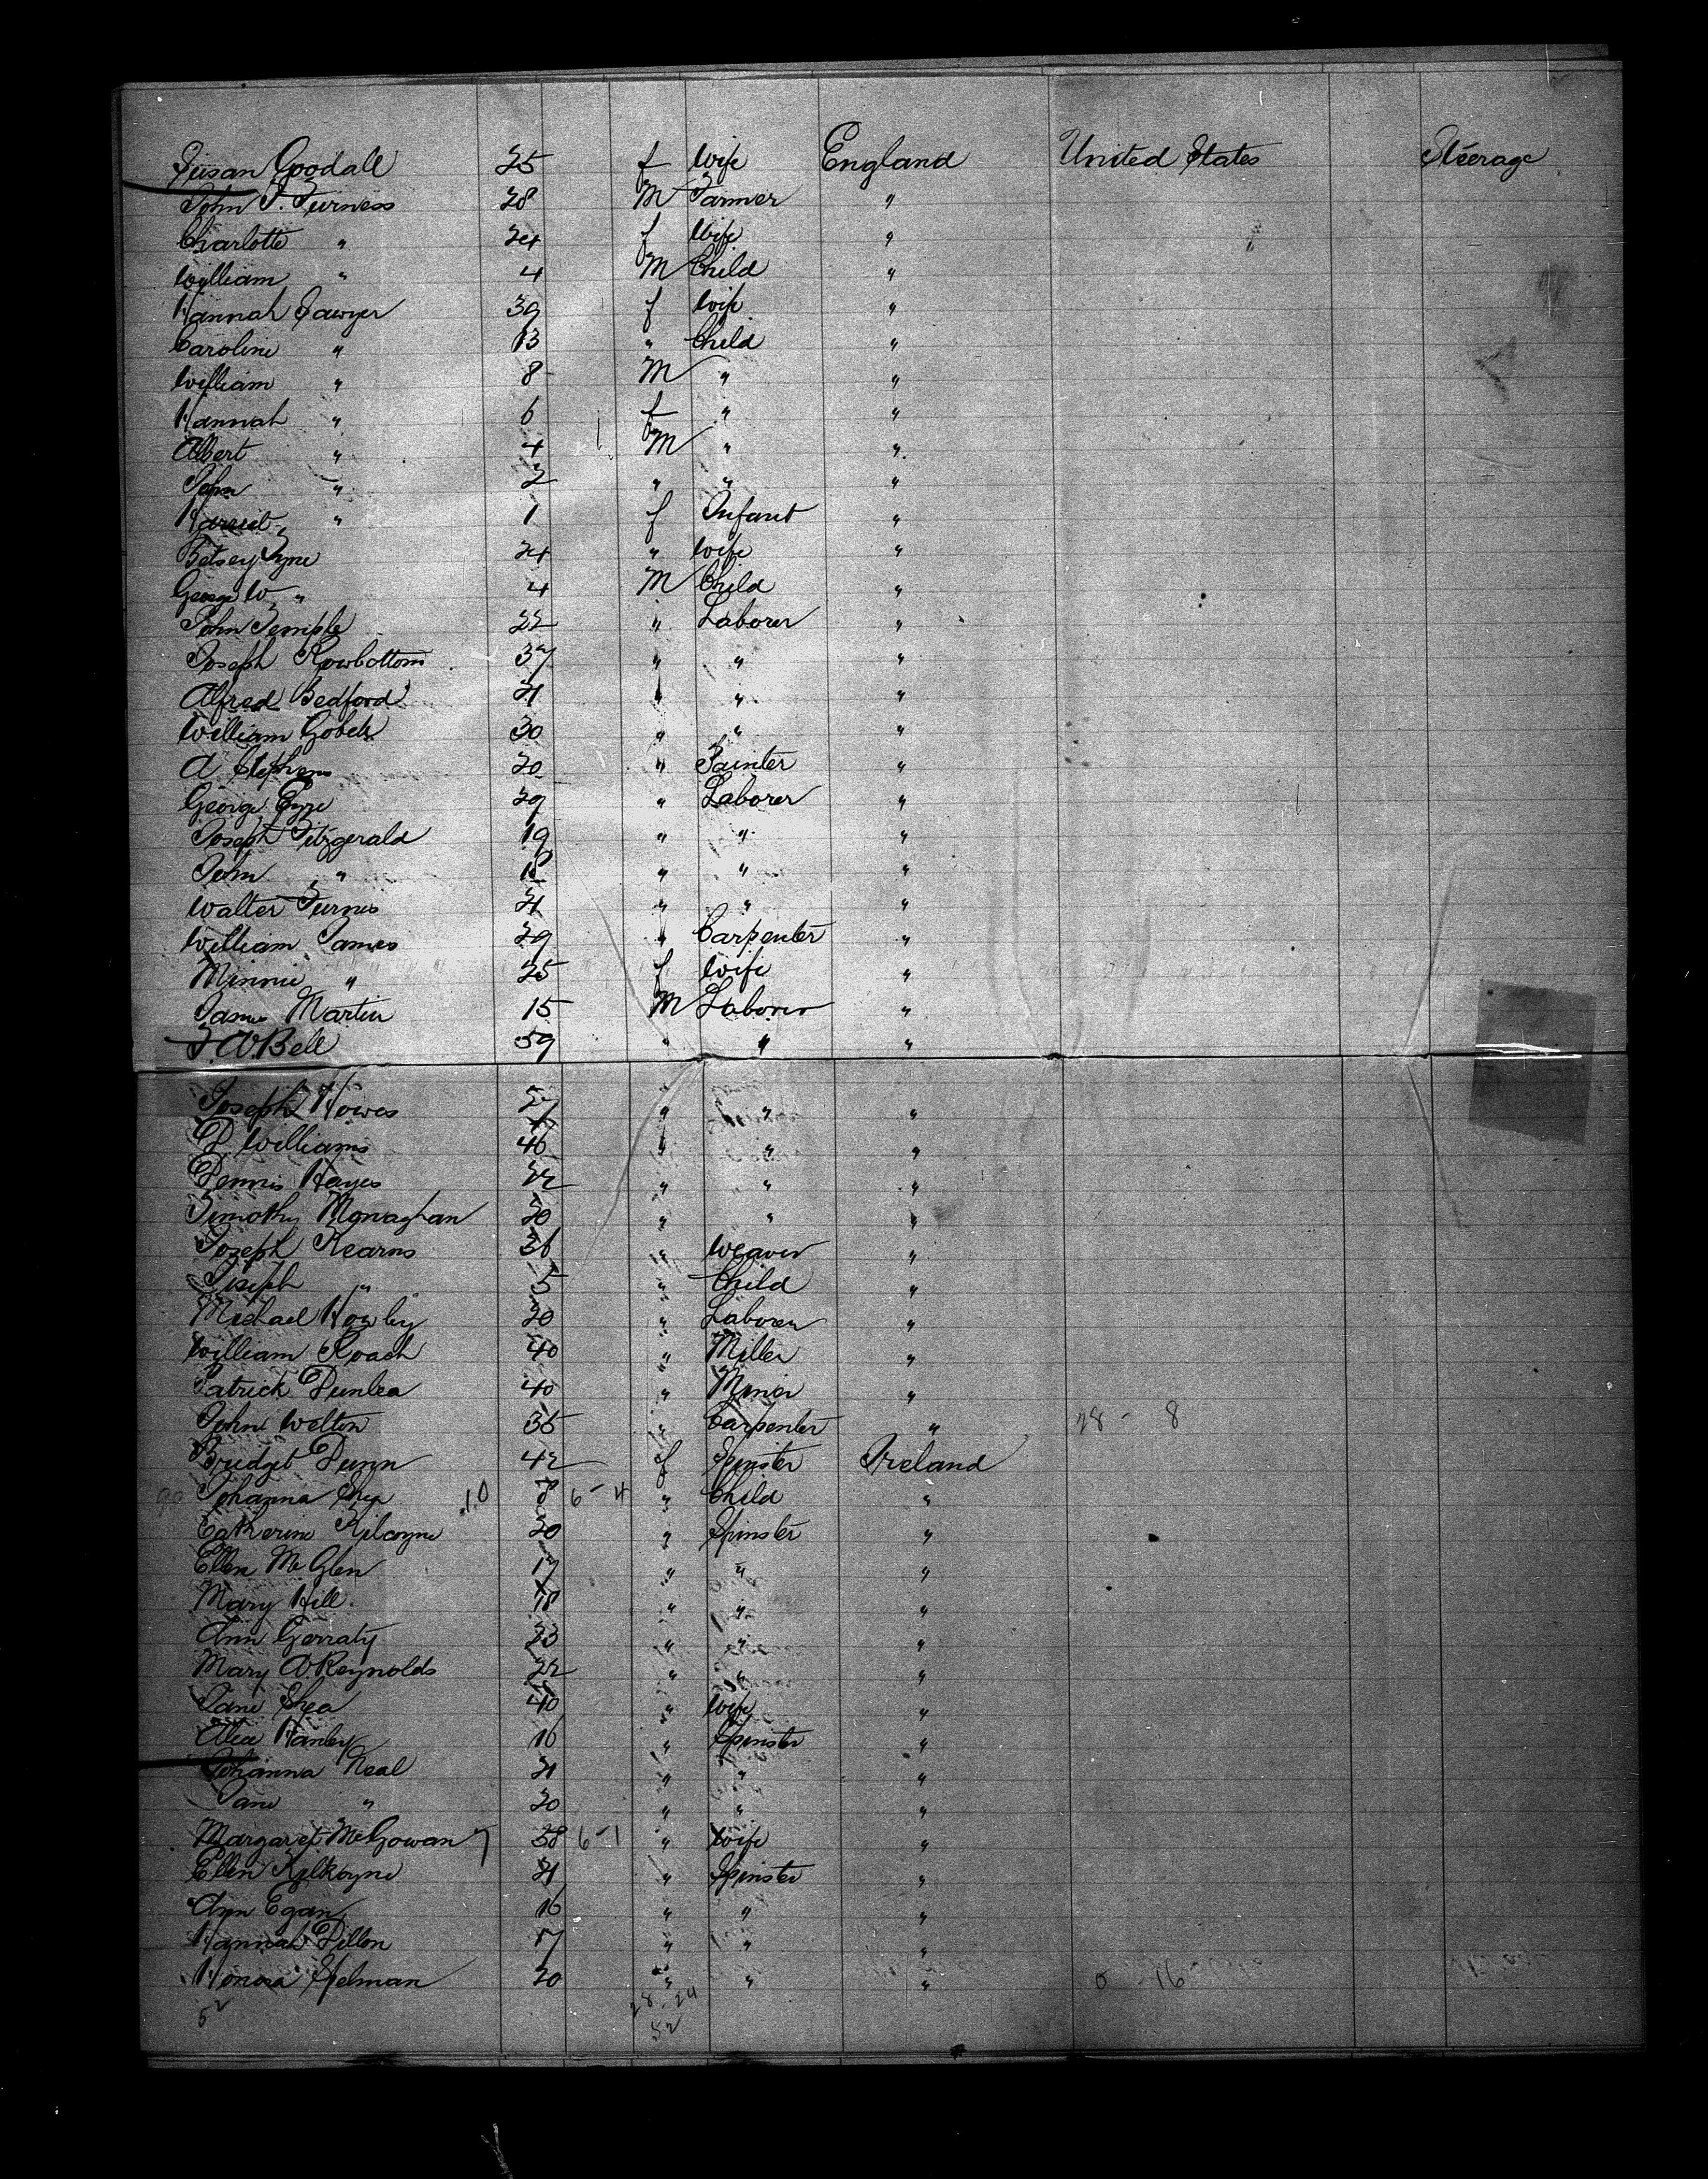 Susan Goodall 25 f Wife England United States Steerage
John T. Furness 28 M Farmer "
Charlotte " 24 f Wife "
William " 4 M Child "
Hannah Sawyer 39 f Wife "
Caroline " 13 " Child "
William " 8 M " "
Hannah " 6 f " "
Albert " 4 M " "
John " 2 " " "
Harriet " 1 f Infant "
Betsey 24 " Wife "
George W. " 4 M Child "
John Temple 22 " Laborer "
Joseph Rowbottom 37 " " "
Alfred Bedford 21 " " "
William 30 " " "
A Stephens 20 " Painter "
George Eyre 29 " Laborer "
Joseph Fitzgerald 19 " " "
John " 18 " " "
Walter Furnis 21 " " "
William James 29 " Carpenter "
Minnie " 25 f Wife "
James Martin 15 M Laborer "
Bell 59 " " "
Joseph Howes 27 " " "
D Williams 46 " " "
Dennis Hayes 22 " " "
Timothy Monaghan 20 " " "
Joseph Kearns 36 " Weaver "
Joseph " 5 " Child "
Michael Howley 20 " Laborer "
William Roach 40 " Miller "
Patrick Dunlea 40 " Miner "
John Welton 35 " Carpenter " 28 - 8
Bridget Dunn 42 f Spinster Ireland
Johanna Shea 10 8 6-4 " Child "
Catherine Kilcoyne 20 " Spinster "
Ellen McGlen 17 " " "
Mary Hill 18 " " "
Ann Gerraty 23 " " "
Mary A Reynolds 22 " " "
Jane Shea 40 " Wife "
Hanley 16 " Spinster "
Johanna Neal 21 " " "
Jane " 20 " " "
Margaret McGowan 7 38 6-1 " Wife "
Ellen Kilkoyne 21 " Spinster "
Ann Egan 16 " " "
Hannah Dillon 17 " " "
Honora Spelman 20 " " " 0 16
52 28-24
52